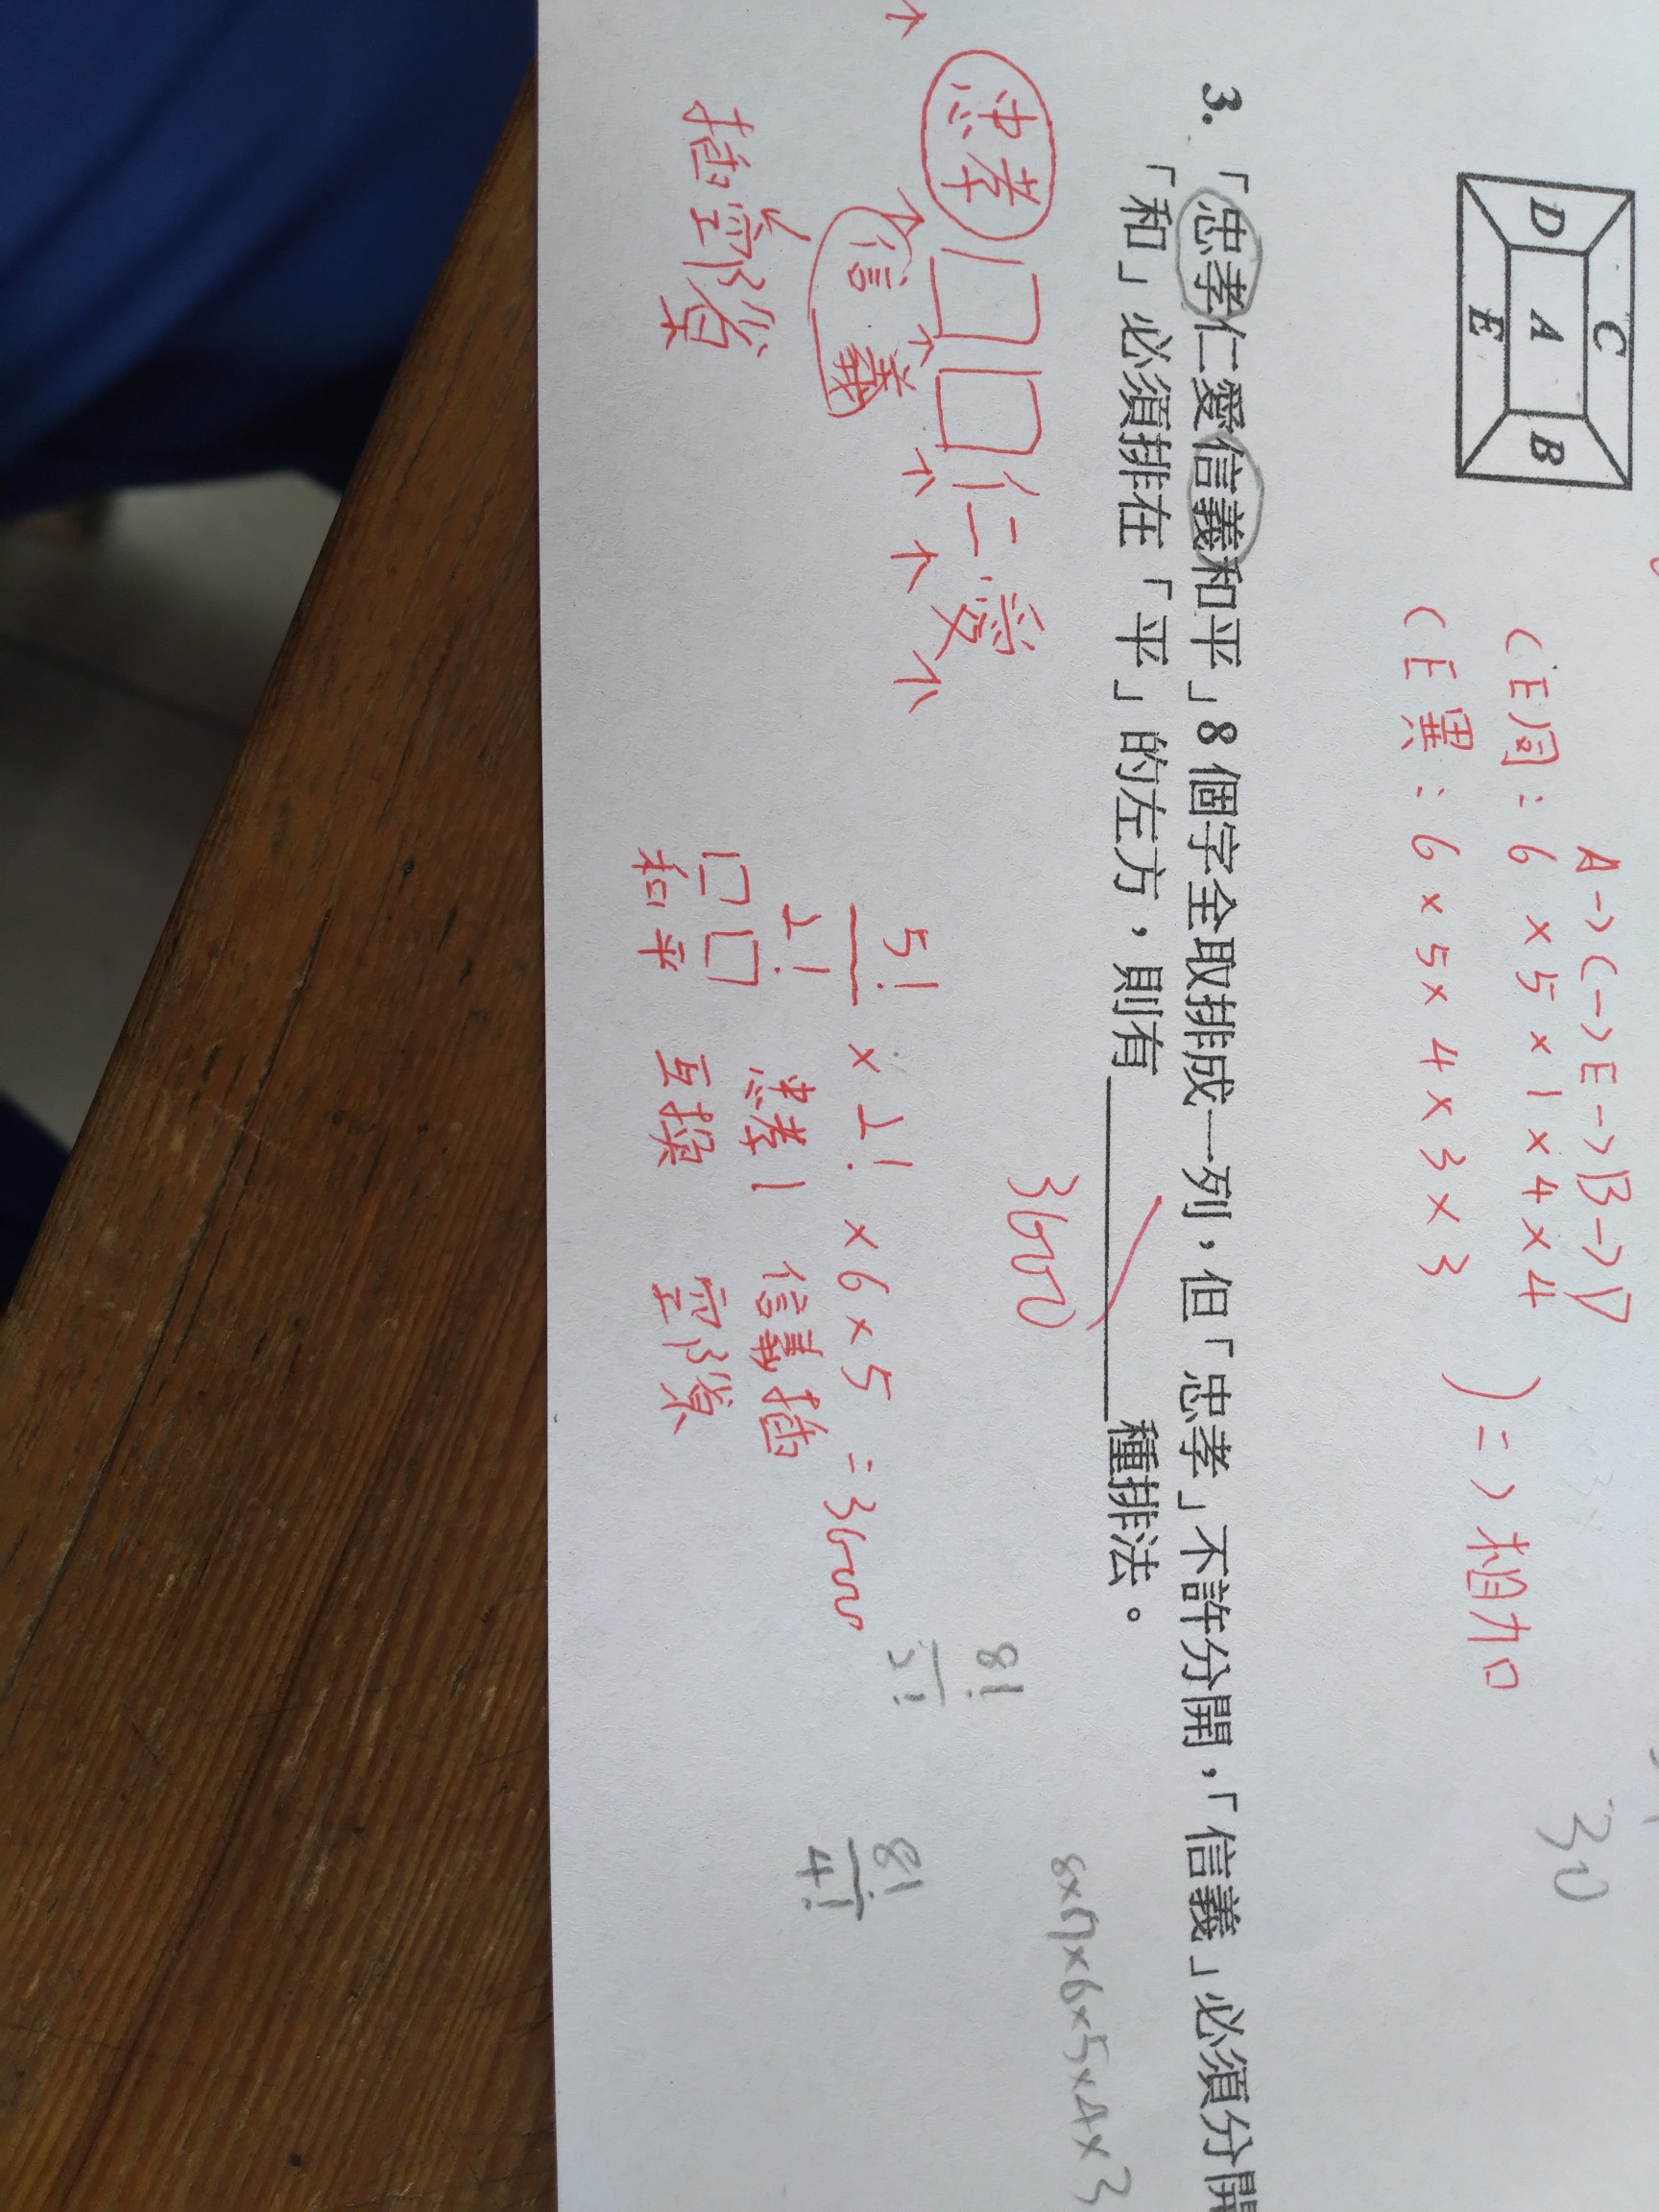 D
C
A
B
E
A→C→E→B→D
CE同:6×5×1×4×4
CE異:6×5×4×3×3
)=>相加
30
3. 「忠孝仁愛信義和平」8個字全取排成一列,但「忠孝」不許分開,「信義」必須分開
「和」必須排在「平」的左方,則有
種排法。
3600
8×7×6×5×4×3
忠孝 □ □ 仁 愛
信 義
插空隙
5!/2! × 2! × 6 × 5 = 3600
□□ 忠孝 信義插
和平 互換 空隙
8!
5!
8!
4!